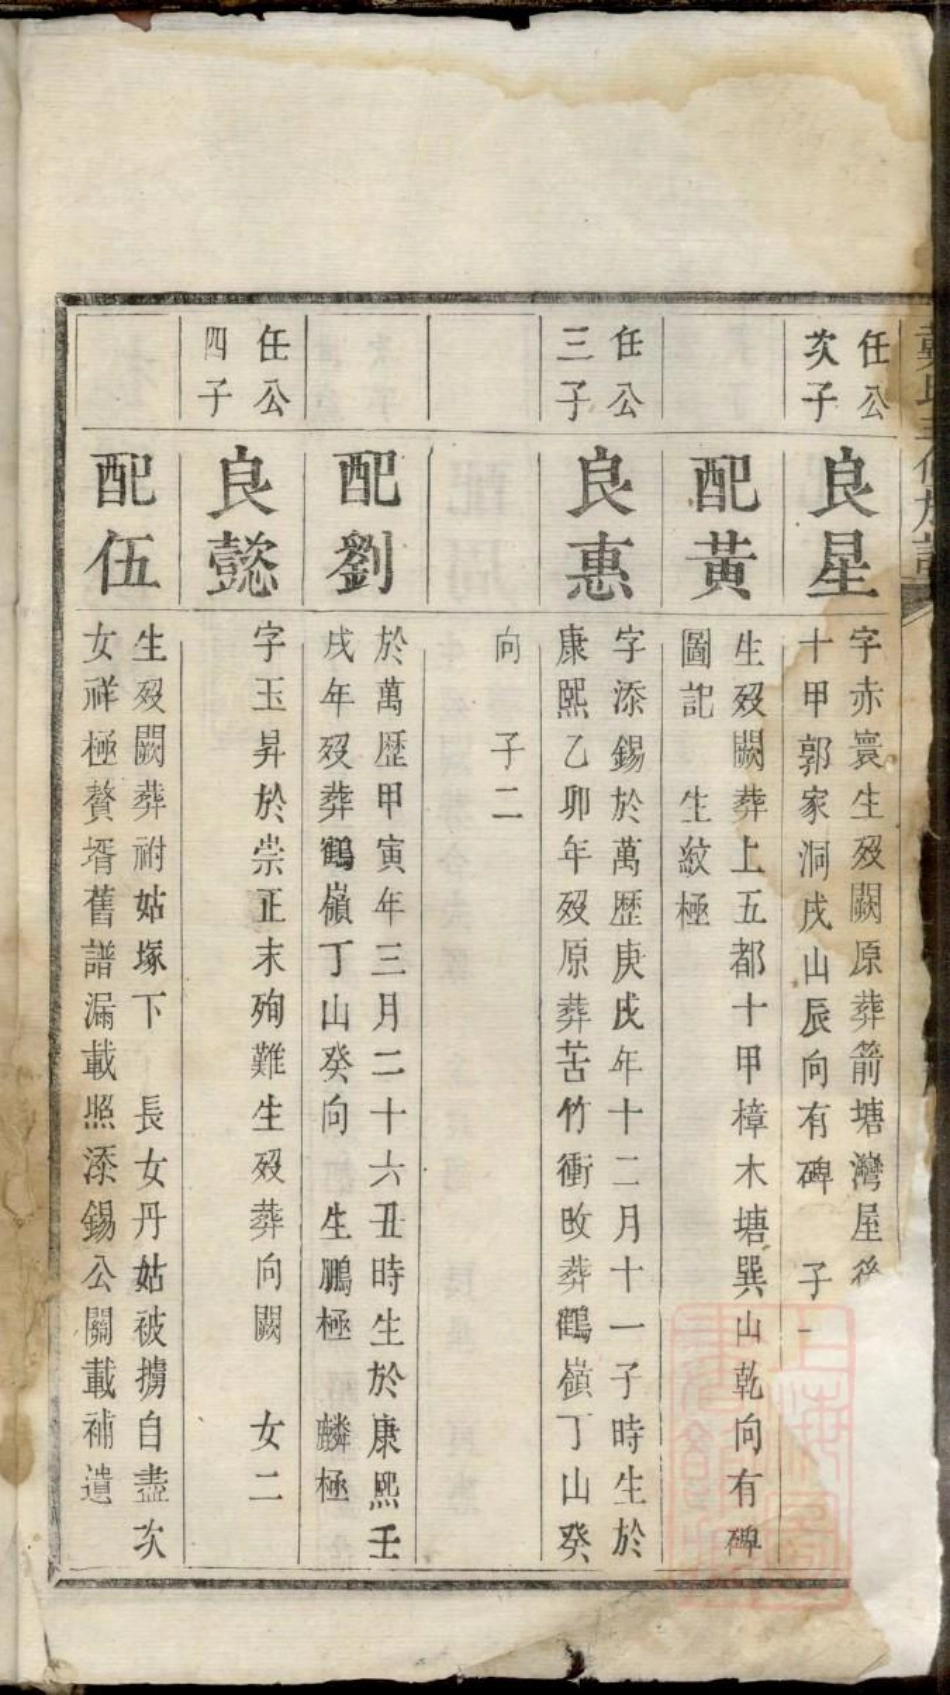 任公
次子
良星
字赤寰生歿闕原葬箭塘灣屋後
十甲郭家洞戌山辰向有碑　子一
配黃
生歿闕葬上五都十甲樟木塘巽山乾向有碑
圖記　生紋極
任公
三子
良惠
字添錫於萬歷庚戌年十二月十一子時生於
康熙乙卯年歿原葬苦竹衝改葬鶴嶺丁山癸
向　子二
配劉
於萬歷甲寅年三月二十六丑時生於康熙壬
戌年歿葬鶴嶺丁山癸向　生鵬極　麟極
任公
四子
良懿
字玉昇於崇正末殉難生歿葬向闕　女二
配伍
生歿闕葬祔姑塚下　長女丹姑被擄自盡次
女祥極贅壻舊譜漏載照添錫公關載補遺